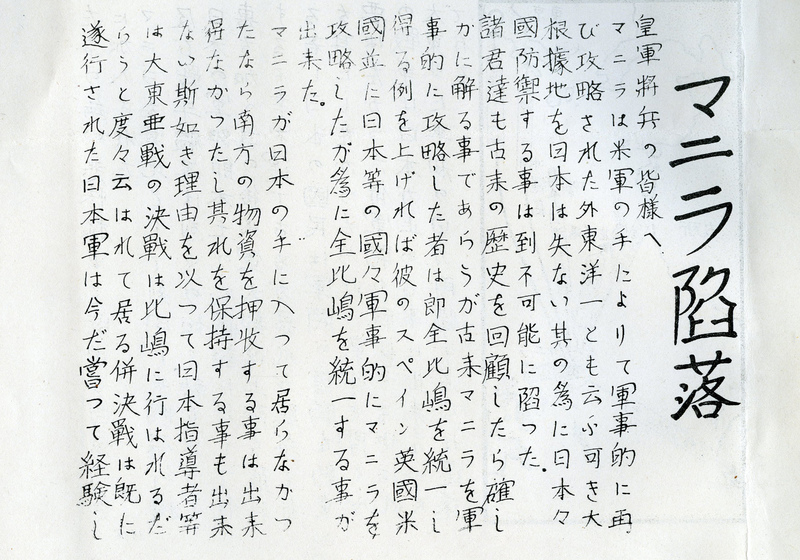 マニラ陥落
皇軍將兵の皆様へ
マニラは米軍の手によりて軍事的に再
び攻略された外東洋一とも云ふ可き大
根據地を日本は失ない其の為に日本々
國防禦する事は到不可能に陥つた。
諸君達も古来の歴史を回顧したら確し
かに解る事であらうが古来マニラを軍
事的に攻略した者は即全比嶋を統一し
得る例を上げれば彼のスペイン英國米
國並に日本等の國々軍事的にマニラを
攻略したが為に全比嶋を統一する事が
出来た。
マニラが日本の手に入つて居らなかつ
たなら南方の物資を押收する事は出来
得なかつたし其れを保持する事も出来
ない斯如き理由を以つて日本指導者等
は大東亜戰の決戰は比嶋に行はれるだ
らうと度々云はれて居る併決戰は既に
遂行された日本軍は今だ嘗つて経験し